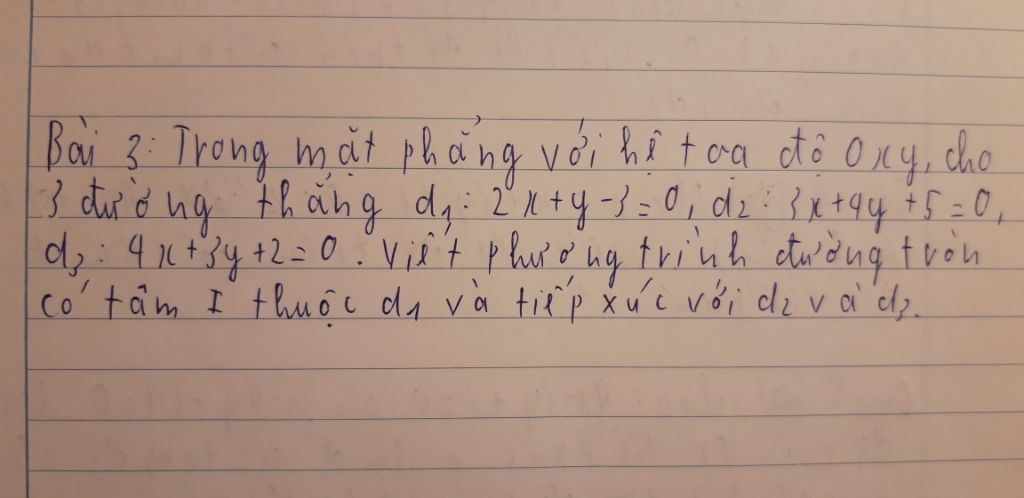 Bài 3: Trong mặt phẳng với hệ tọa độ Oxy, cho
3 đường thẳng d1: 2x+y-3=0, d2: 3x+4y+5=0,
d3: 4x+3y+2=0. Viết phương trình đường tròn
có tâm I thuộc d1 và tiếp xúc với d2 và d3.